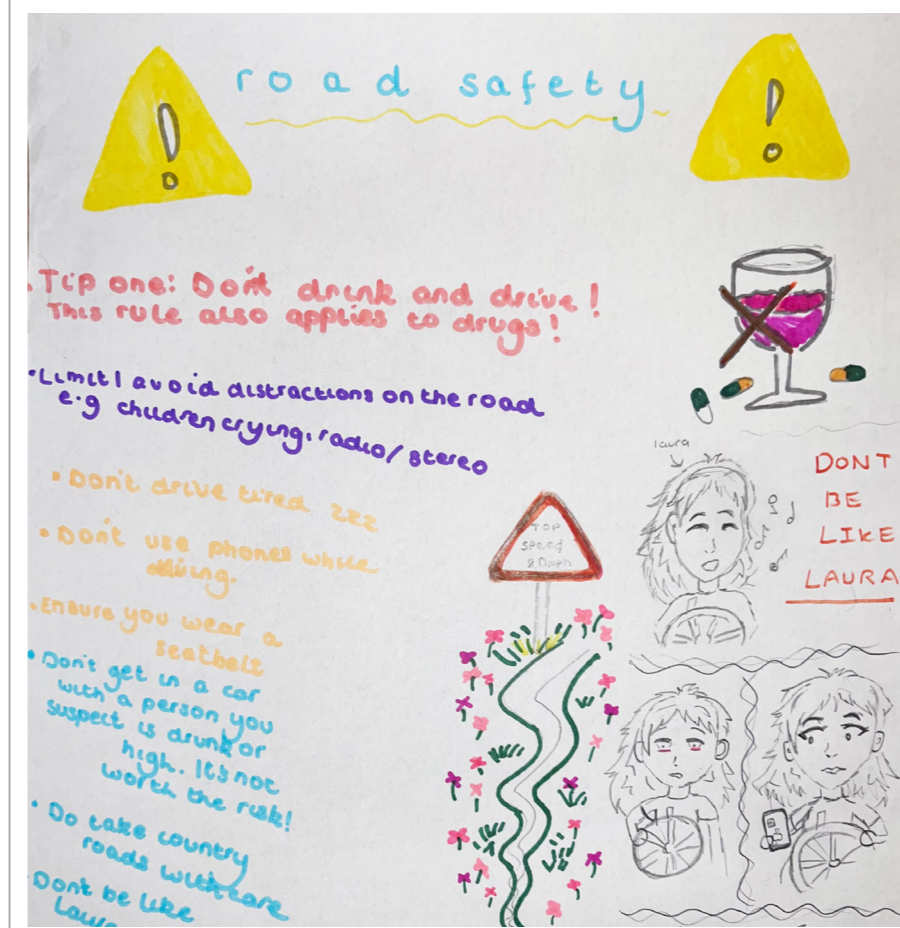 road safety
Tip one: Don't drink and drive!
This rule also applies to drugs!
•Limit/avoid distractions on the road
e.g children crying, radio/stereo
•Don't drive tired zzz
•Don't use phones while
driving.
•Ensure you wear a
seatbelt
•Don't get in a car
with a person you
suspect is drunk or
high. It's not
worth the risk!
•Do take country
roads with care
Don't be like
Laura
laura
DONT
BE
LIKE
LAURA
TOP
speed
20mph